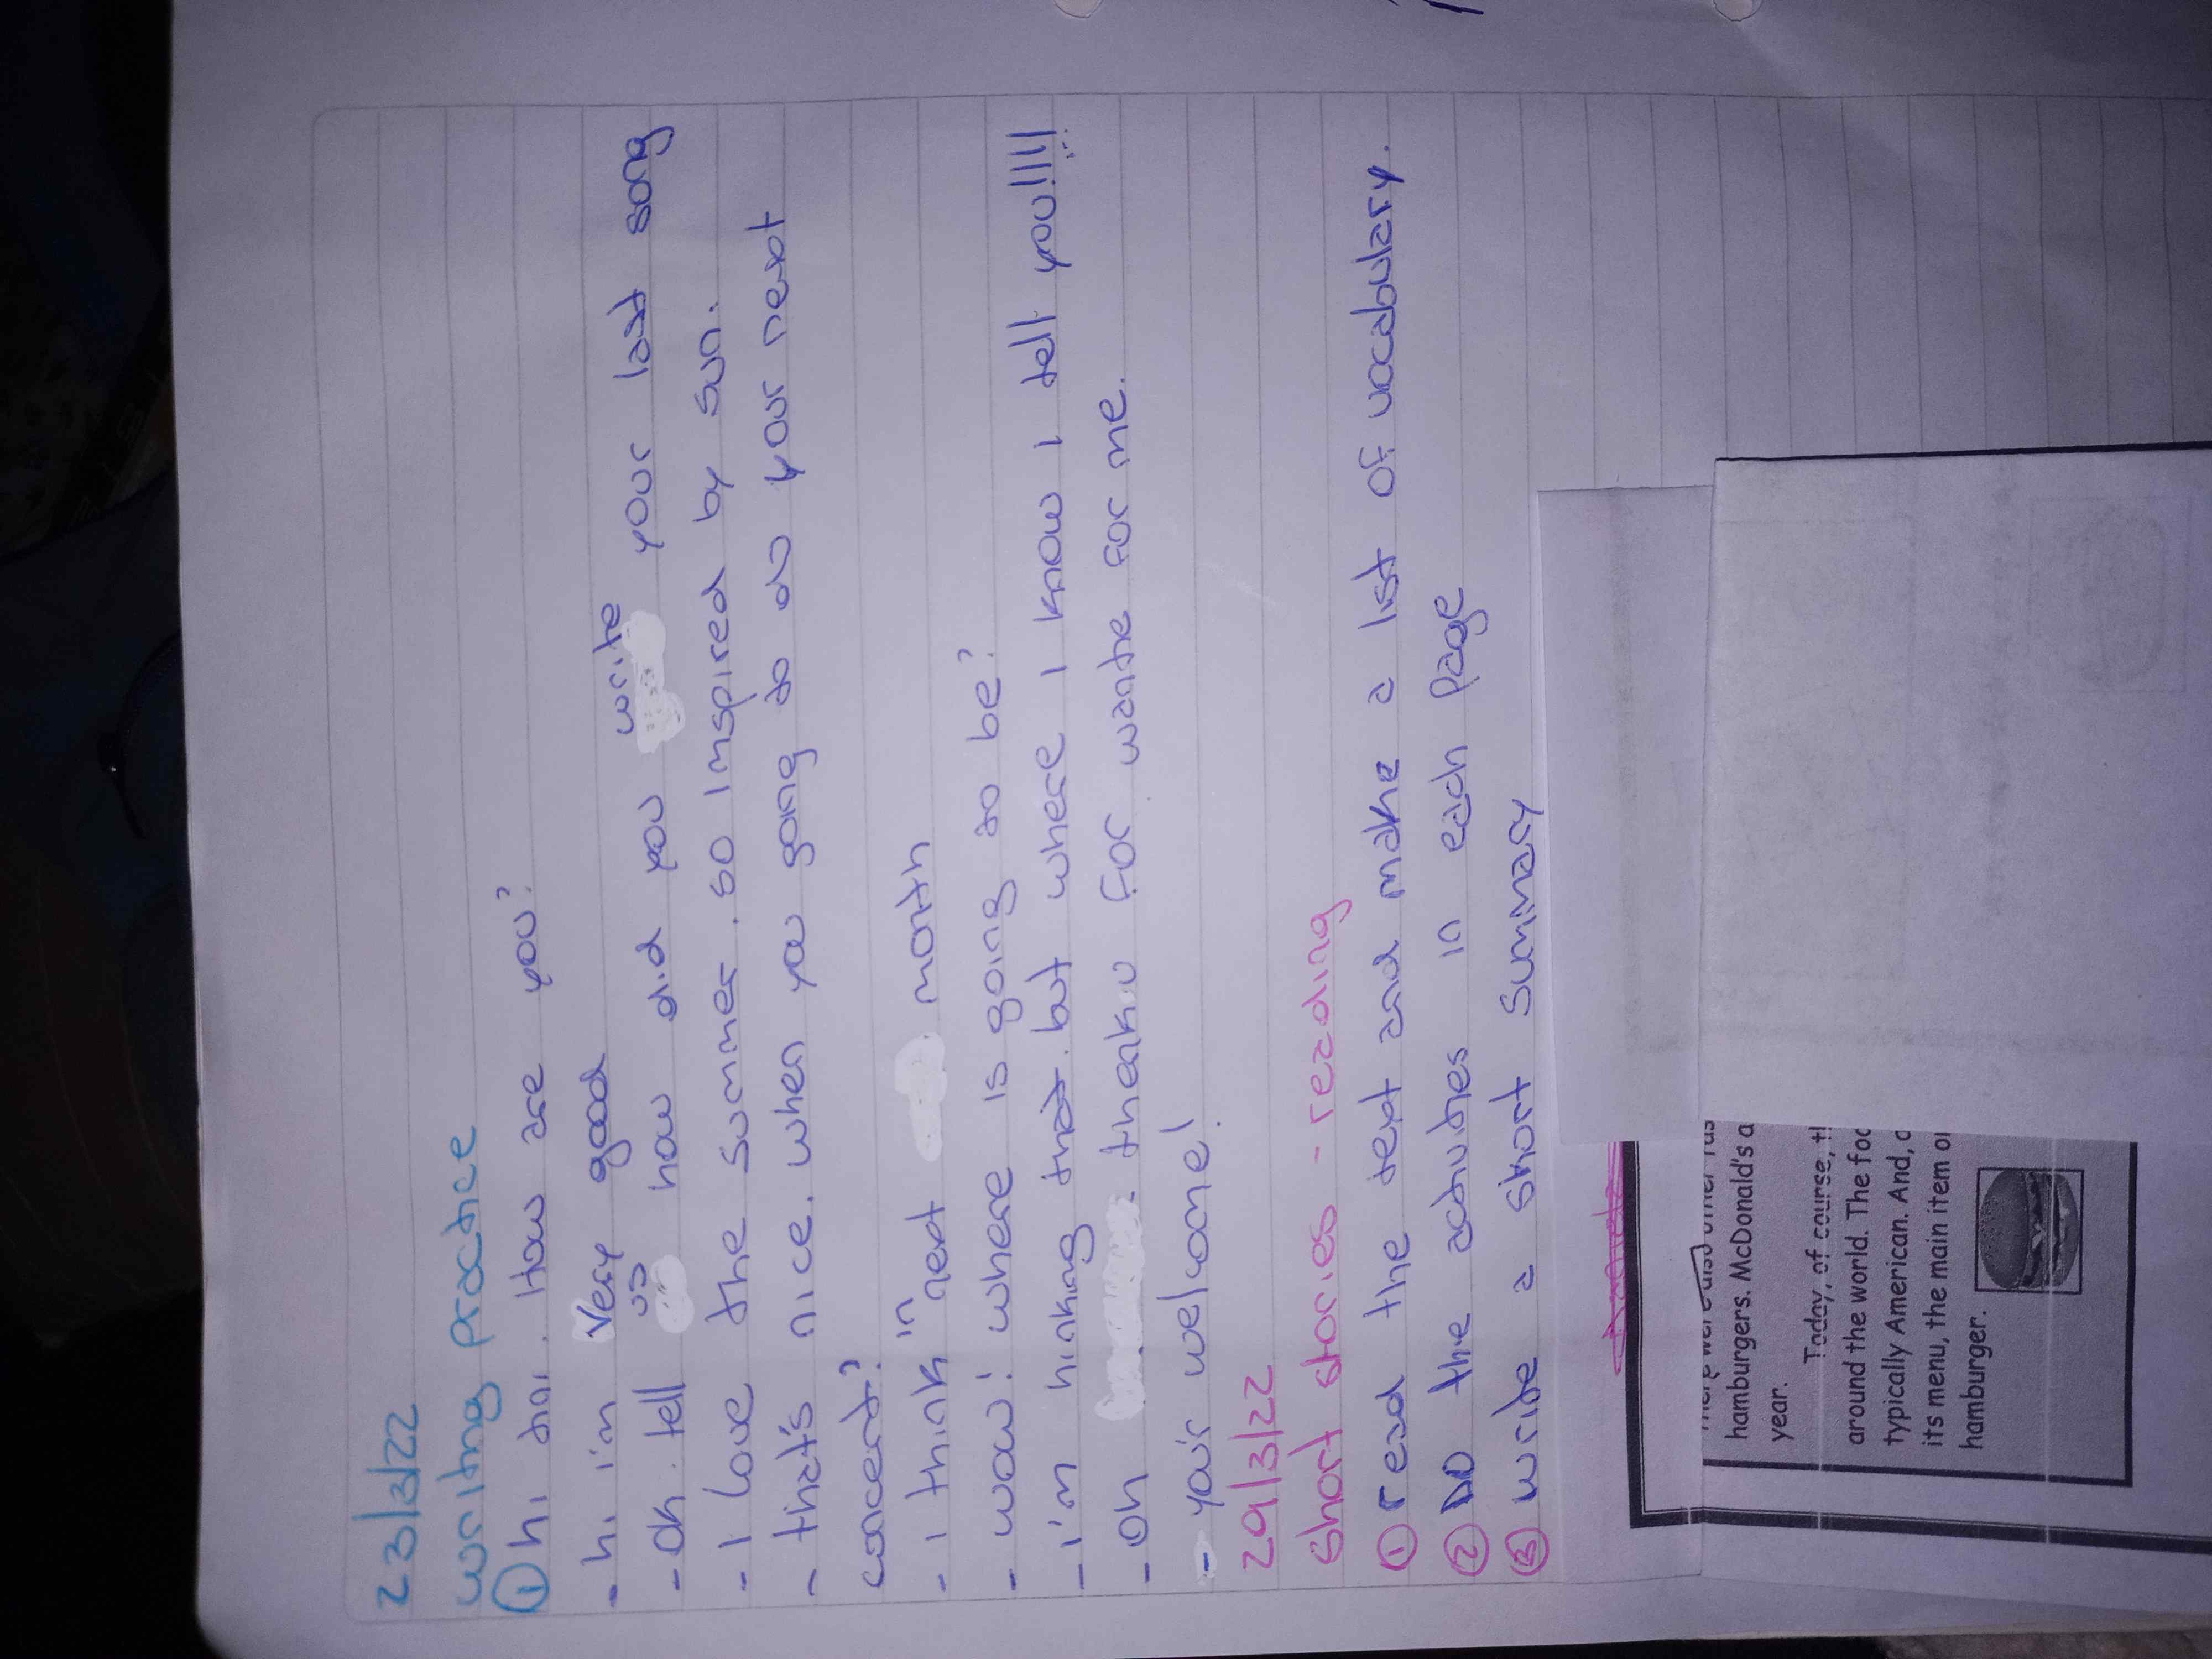 23/3/22
writing practice
① hi tini. How are you?
- hi i'm Very good
- oh. tell us how did you write your last song
- I love the summer. so inspired by sun.
- that's nice. when you going to do your next
concert?
- i think in next month
- wow! where is going to be?
- i'm hinking that. but where I know I tell you!!!!
- oh thenku for wante for me.
- you'r welcome!
29/3/22
short stories - reading
① read the text and make a list of vocabulary.
② DO the actvities in each page
③ write a short summary
hamburgers. McDonald's a
year.
Today, of course, t
around the world. The foo
typically American. And, o
its menu, the main item o
hamburger.